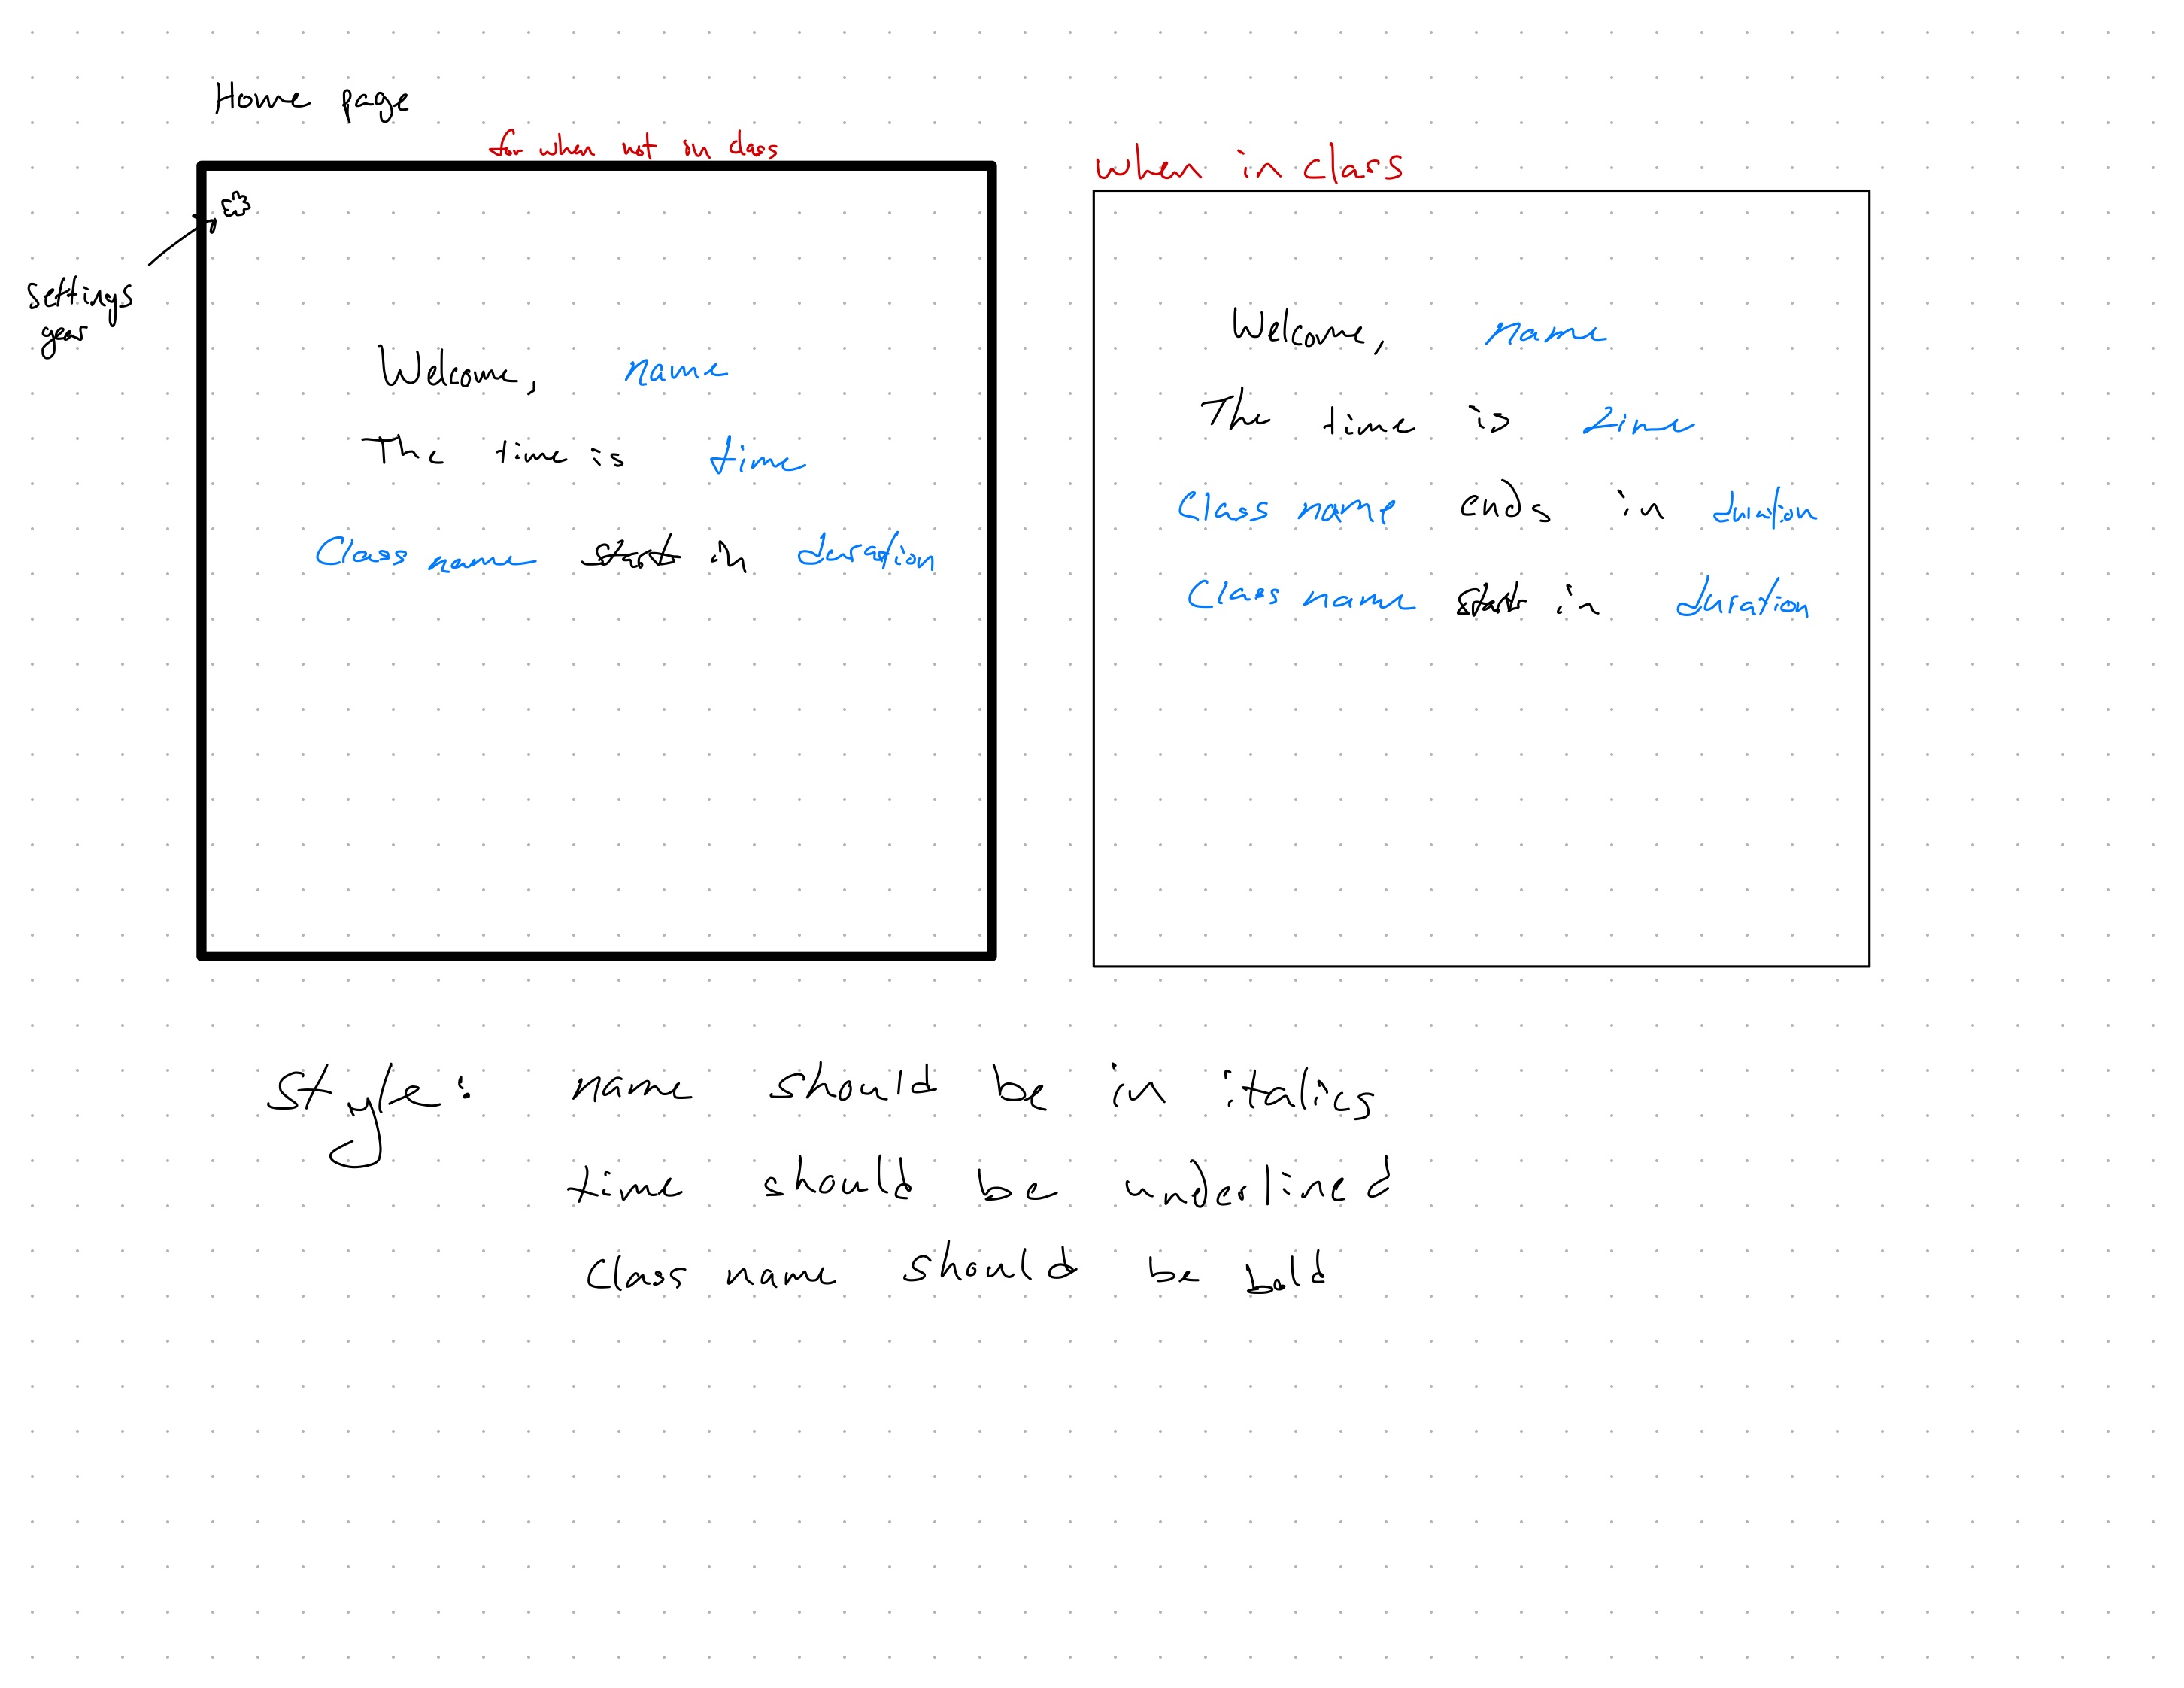 Home page
for when not in class
settings
gear
Welcome, name
The time is time
Class name start in duration
when in class
Welcome, name
The time is time
Class name ends in duration
Class name starts in duration
Style: name should be in italics
time should be underlined
Class name should be bold